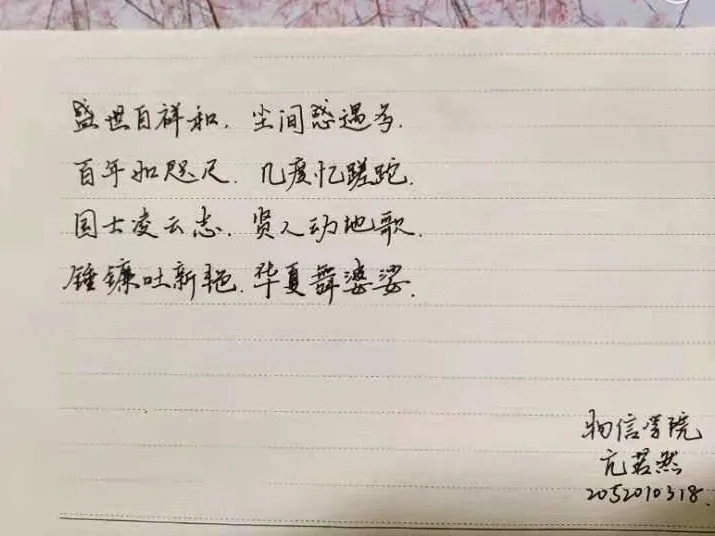 盛世自祥和，尘间感遇多.
百年如咫尺.几度忆蹉跎.
国士凌云志.贤人动地歌.
锤镰吐新艳.华夏舞婆娑.
物信学院
亢若然
2052010318.